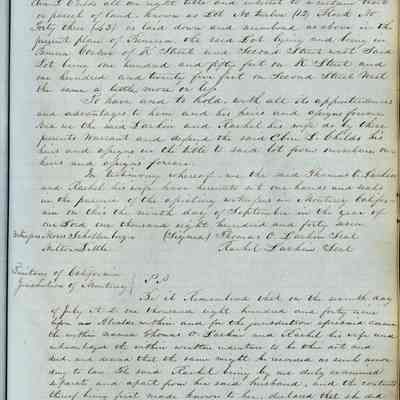 Ann L. Childs all our right title and interest to a certain tract
or parcel of land known as Lot Number (12) Block No
forty three (43) as laid down and numbered as above in the
present plan of Benicia the said Lot lying and being on
corner of K Street and Second Street west Said
Lot being one hundred and fifty feet on K Street and
one hundred and twenty five feet on Second Street West
the same a little more or less
To have and to hold with all its appurtenances
and advantages to him and his heirs and assigns forever
And we the said Larkin and Rachel his wife do by these
presents Warrant and defend the said L. Childs his
heirs and assigns in the title to said lot from ourselves our
heirs and assigns forever.
In Testimony whereof we the said Thomas O. Larkin
and Rachel his wife have hereunto set our hands and seals
in the presence of the subscribing witnesses in Monterey Califor-
nia on this the ninth day of September in the year of
our Lord one thousand eight hundred and forty seven
Witnesses Moses Schallenberger (Signed) Thomas O. Larkin Seal
Milton Little Rachel Larkin Seal
Territory of California
Jurisdiction of Monterey } S.S
Be it Remembered that on the seventh day
of July A.D. one thousand eight hundred and forty nine
before me Alcalde within and for the jurisdiction aforesaid came
the within named Thomas O. Larkin and Rachel his wife and
acknowledged the within written indenture to be their act and
deed, and desired that the same might be recorded as such accor
ding to law. The said Rachel being by me duly examined
separate and apart from her said husband, and the contents
thereof being first made known to her, declared that she did